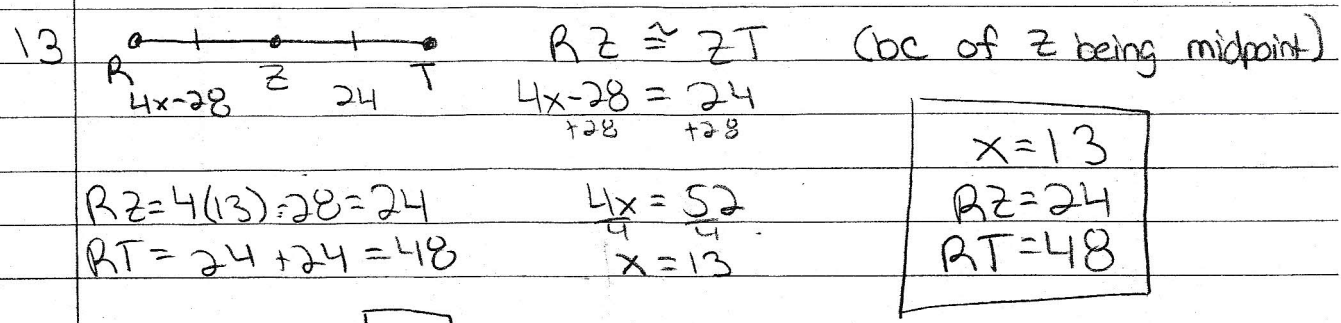 13
R Z T
4x-28 24
RZ ≅ ZT (bc of Z being midpoint)
4x-28 = 24
+28 +28
4x = 52
4 4
x = 13
RZ=4(13)-28=24
RT= 24 +24 =48
x=13
RZ=24
RT=48